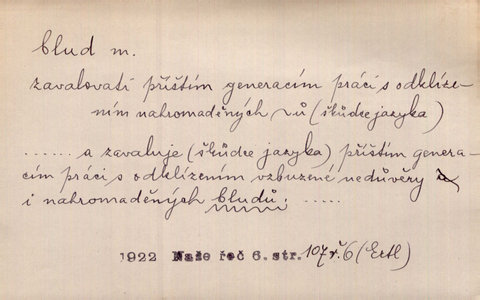 blud m.
zavalovati příštím generacím práci s odklíze-
ním nahromaděných -ů (škůdce jazyka)
...... a zavaluje (škůdce jazyka) příštím genera-
cím práci s odklízením vzbuzené nedůvěry
i nahromaděných bludů. .....
1922 Naše řeč 6. str. 107 ř. 6 (Ertl)